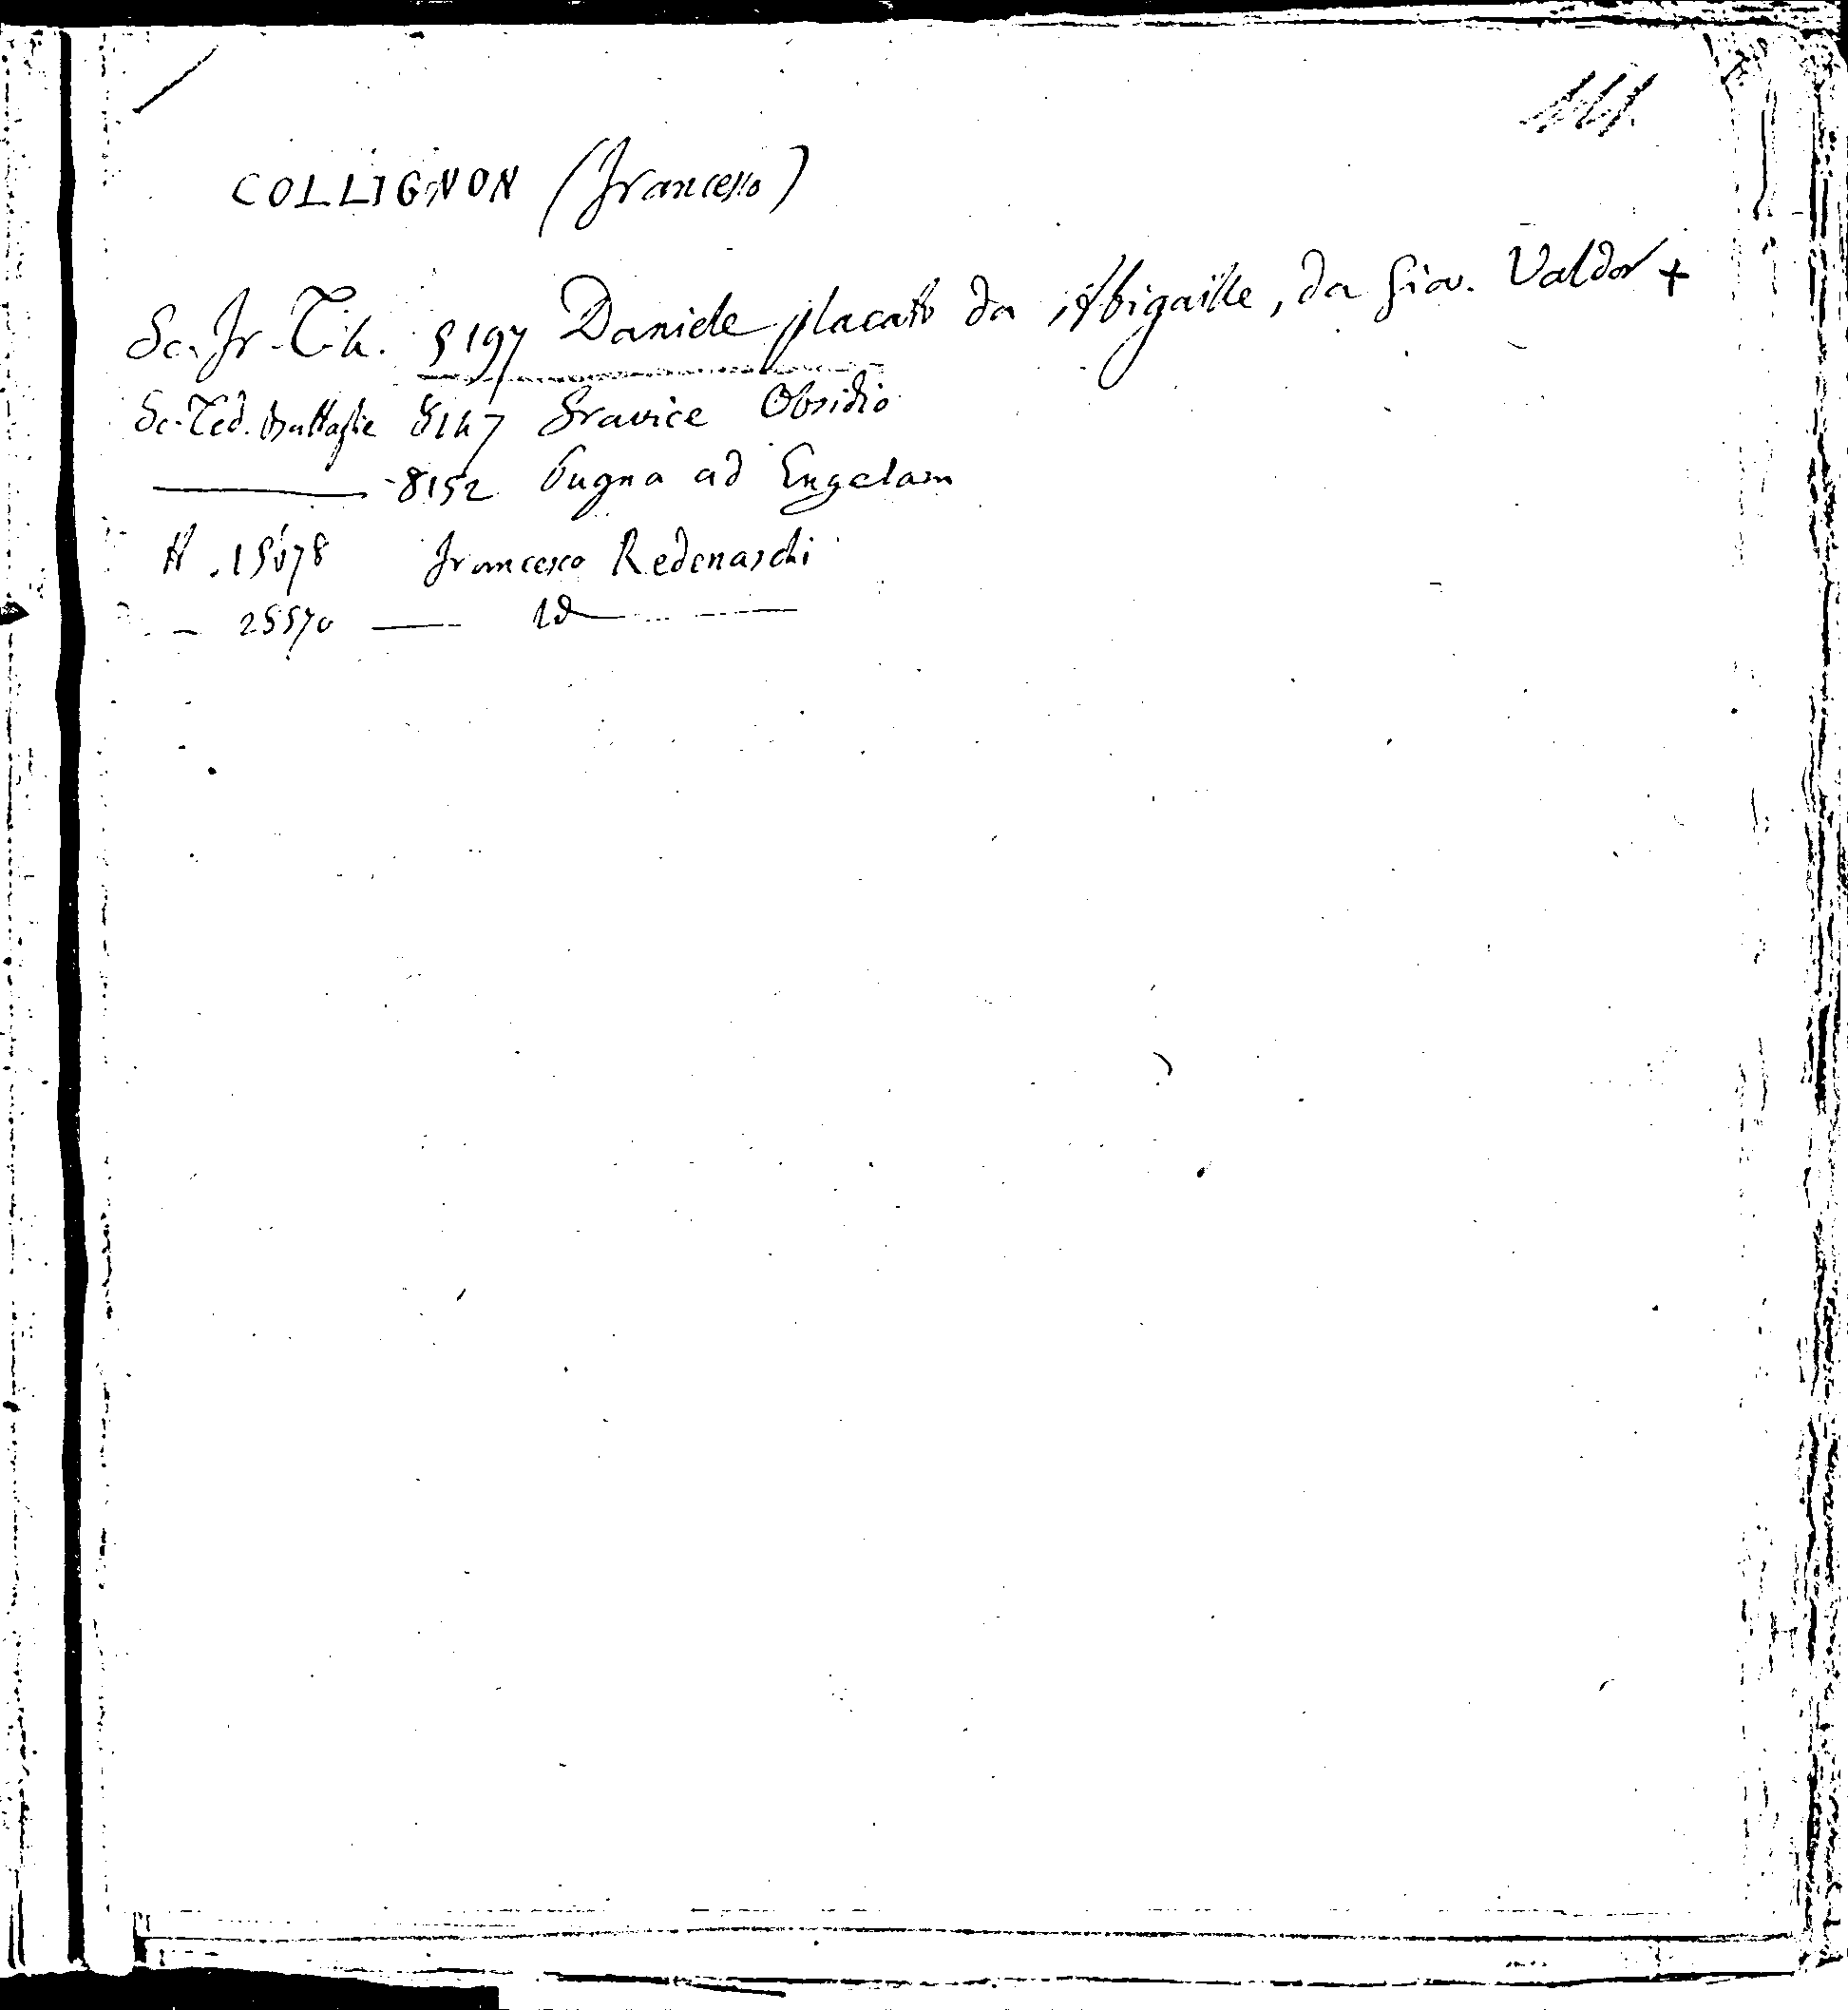 COLLIGNON (Francesco)
Sc. Fr. T. 4. 5197 Daniele placato da Abigaille, da Giov. Valdor +
Sc. Ted. Battaglie 8147 Gravice Obsidio
——— 8152 Pugna ad Engelam
N. 15678 Francesco Redenaschi
— 25570 — Id —